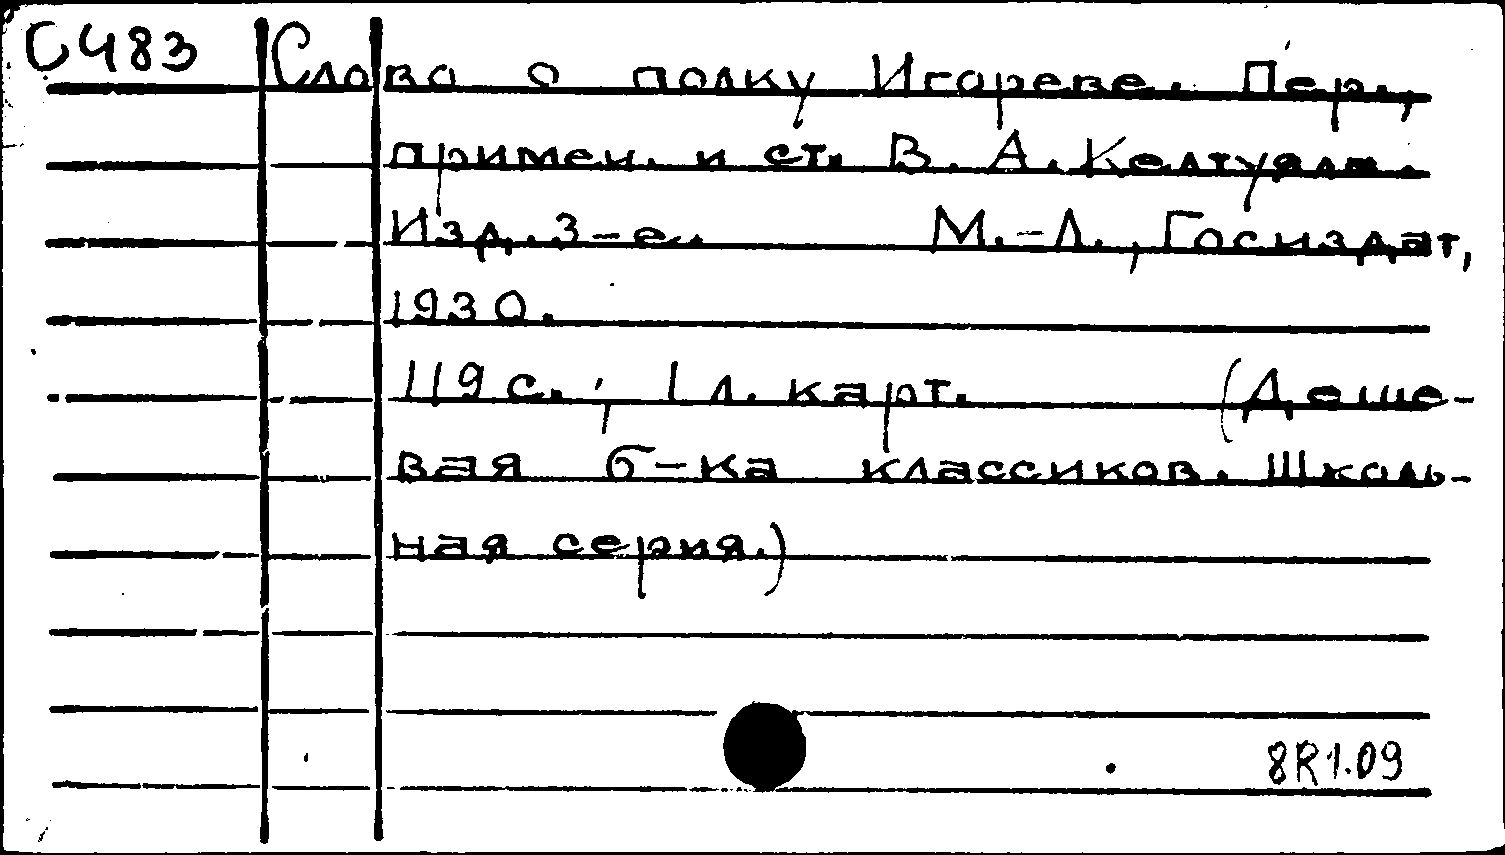 С483
Слово о полку Игореве. Пер.,
примен. и ст. В. А. Келтуяла.
Изд. 3-е. М.-Л., Госиздат,
1930.
119 с.; 1 л. карт. (Деше-
вая б-ка классиков. Школь-
ная серия.)
8R1.09